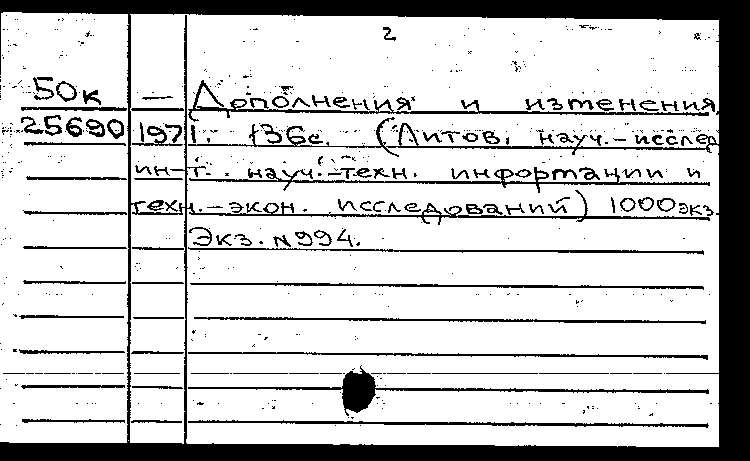 2
50к — Дополнения и изменения
25690 1971. 136с. (Литов. науч.-исслед
ин-т. науч.-техн. информации и
техн.-экон. исследований) 1000экз.
Экз. №994.